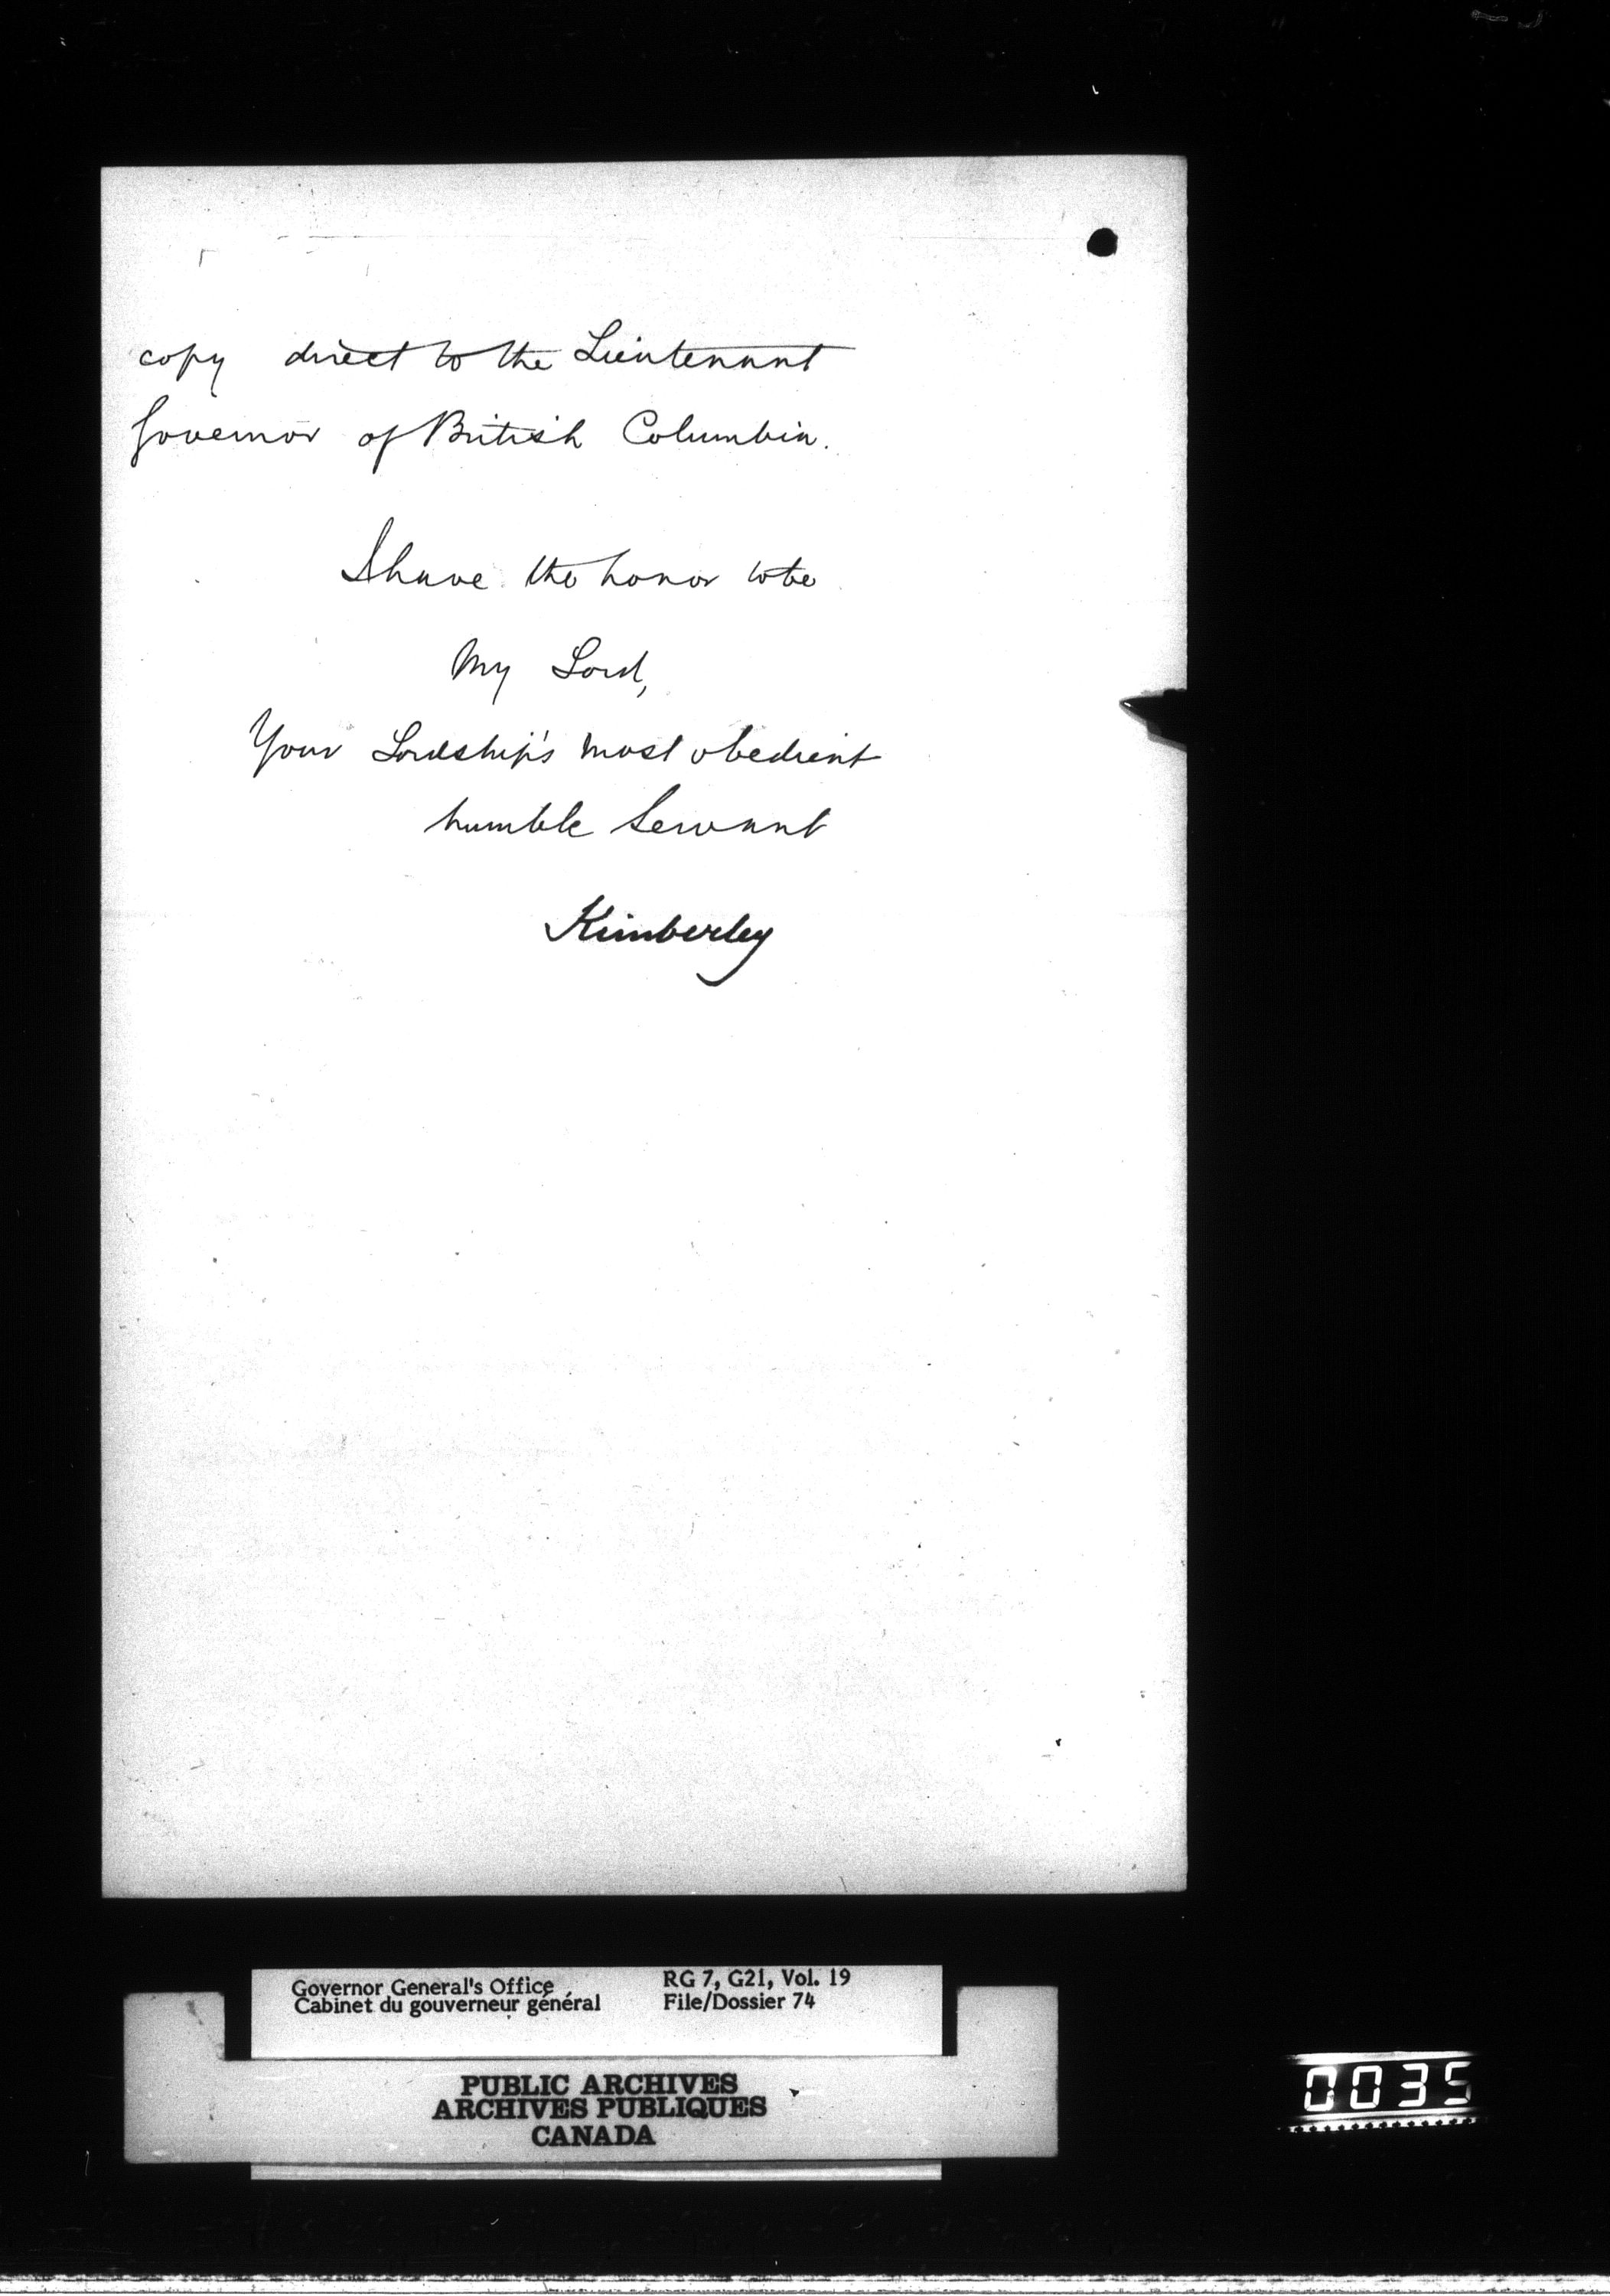 copy direct to the Lieutenant
Governor of British Columbia.
I have the honor to be
My Lord,
Your Lordship's most obedient
humble Servant
Kimberley
Governor General's Office
Cabinet du gouverneur général
RG 7, G21, Vol. 19
File/Dossier 74
PUBLIC ARCHIVES
ARCHIVES PUBLIQUES
CANADA
0035